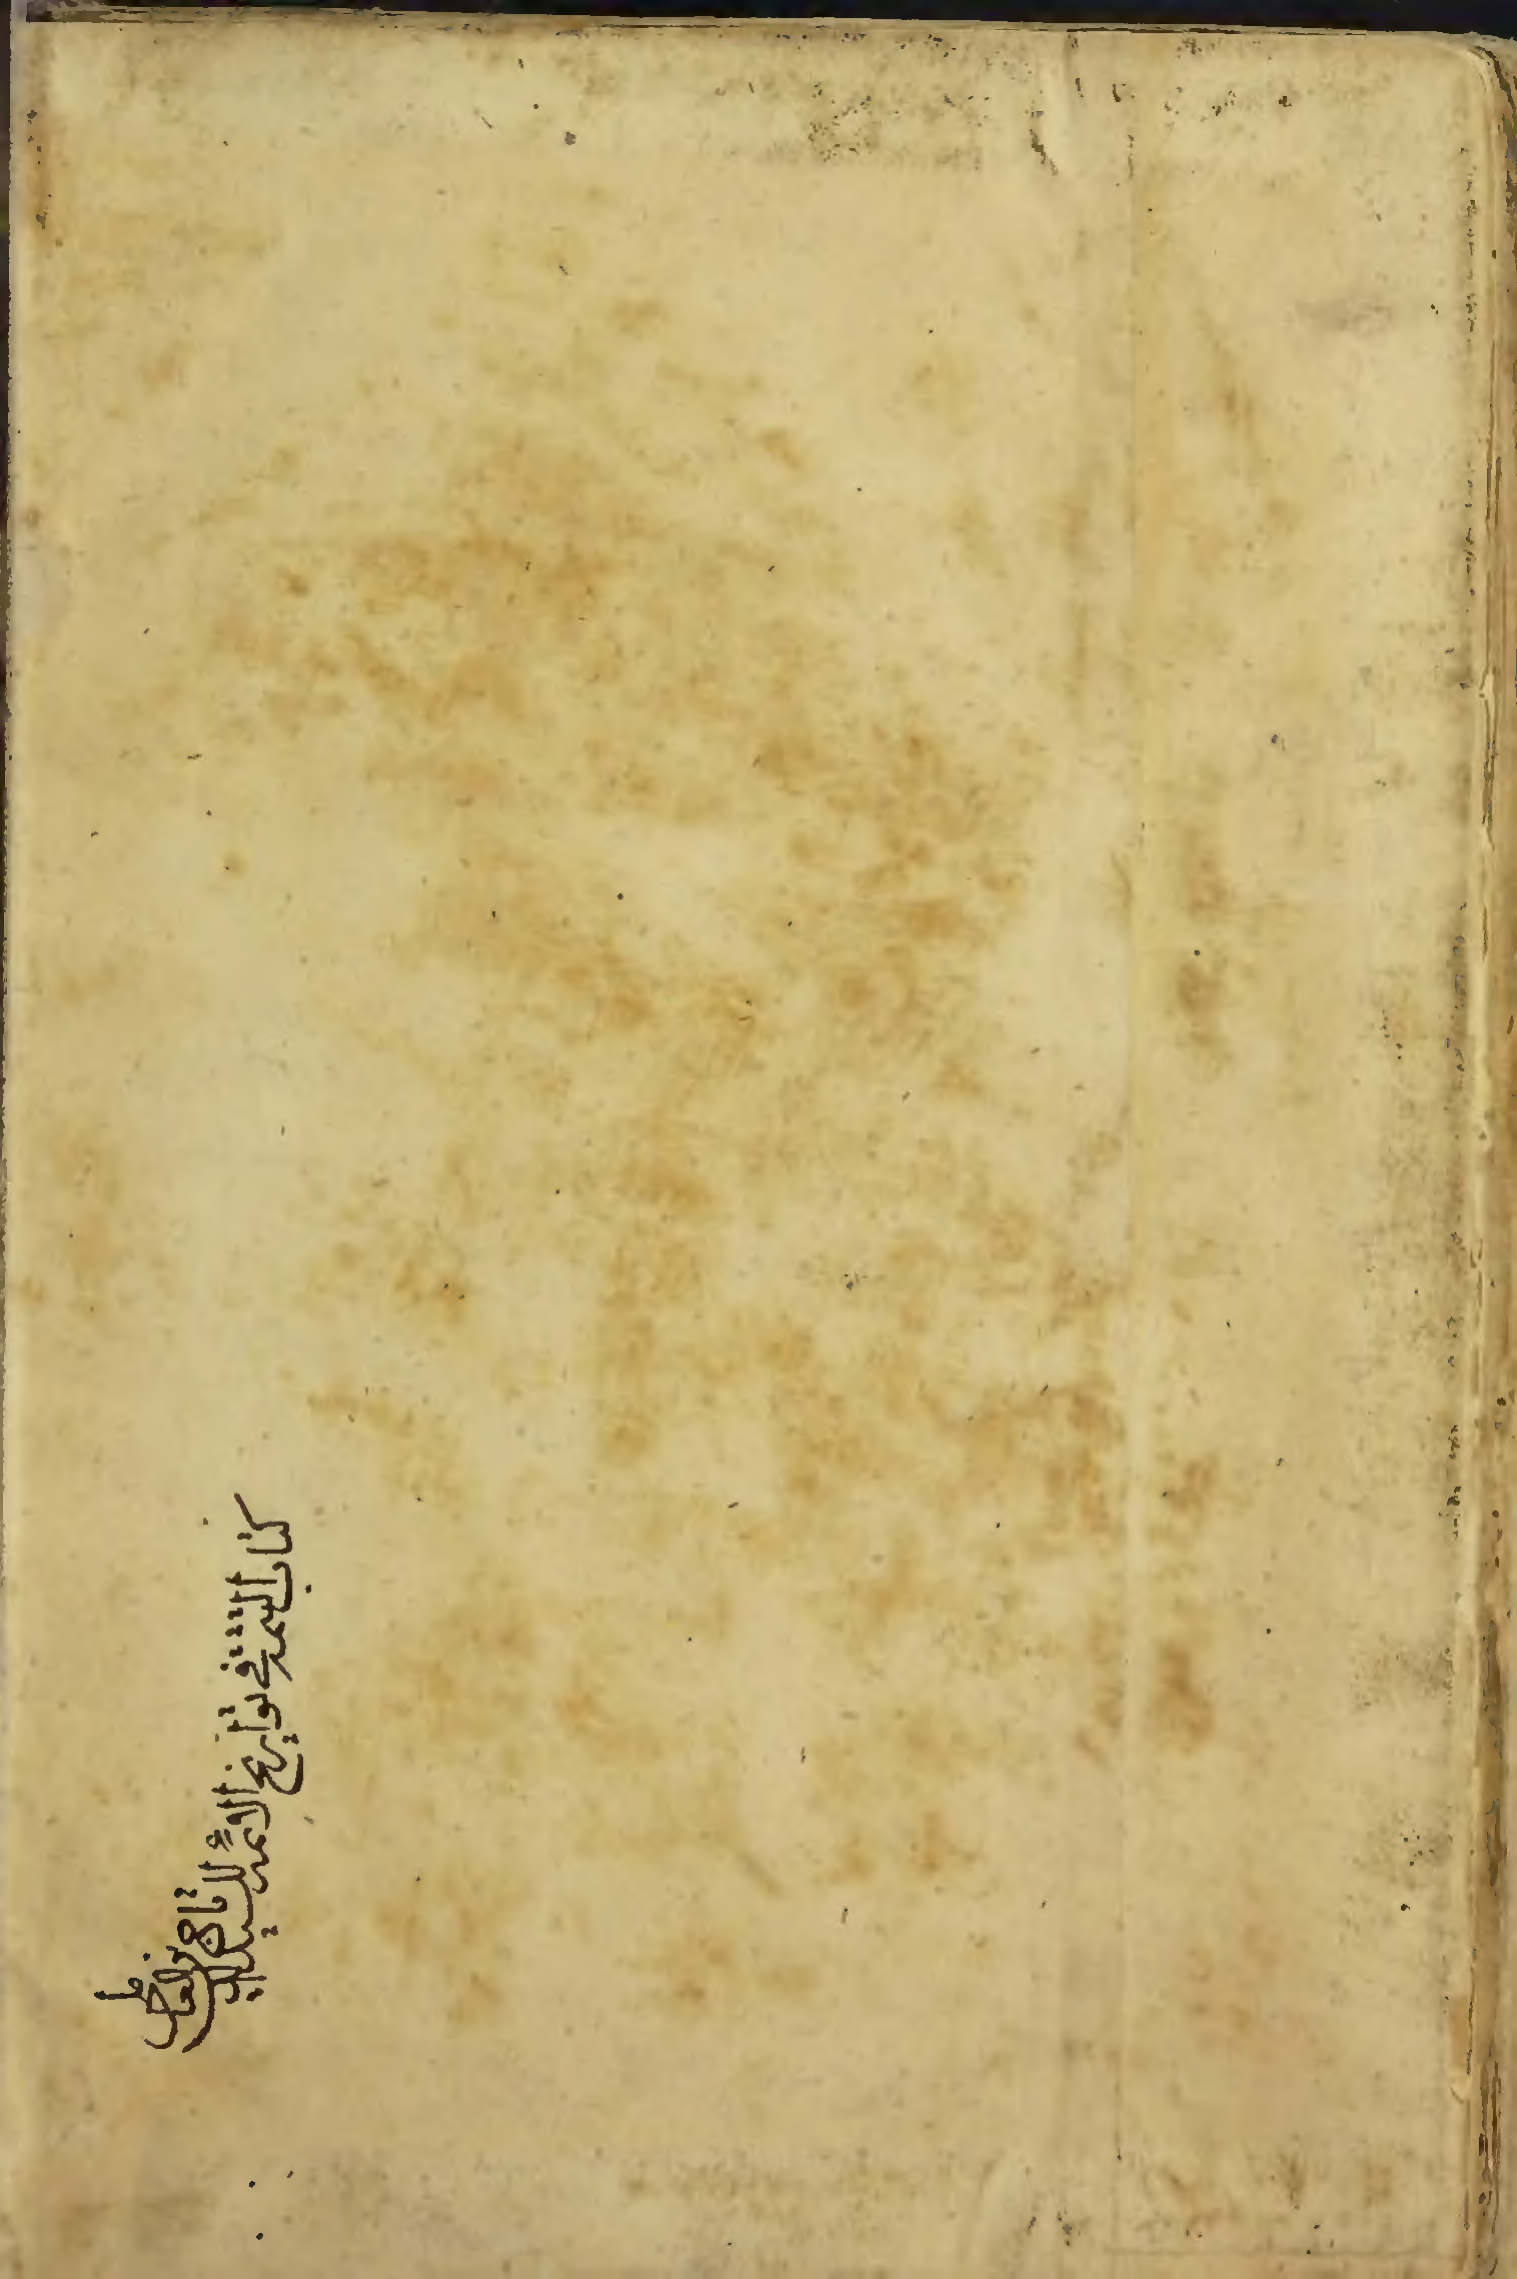 كتاب التتمة في تواريخ الائمة للسيد تاج الدين العاملي